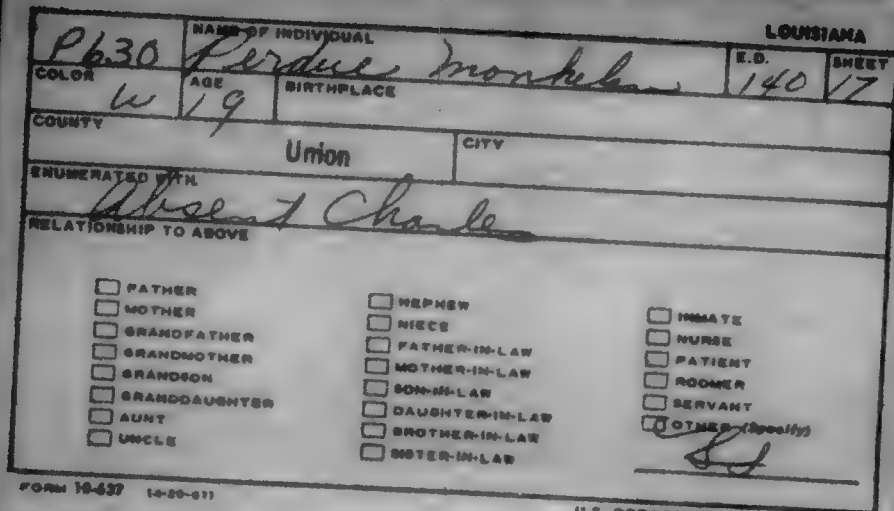 LOUISIANA
NAME OF INDIVIDUAL E.D. SHEET
P630 Perdue 140 17
COLOR AGE BIRTHPLACE
W 19
COUNTY CITY
Union
ENUMERATED WITH
Absent Charle
RELATIONSHIP TO ABOVE
FATHER
MOTHER
GRANDFATHER
GRANDMOTHER
GRANDSON
GRANDDAUGHTER
AUNT
UNCLE
NEPHEW
NIECE
FATHER-IN-LAW
MOTHER-IN-LAW
SON-IN-LAW
DAUGHTER-IN-LAW
BROTHER-IN-LAW
SISTER-IN-LAW
INMATE
NURSE
PATIENT
ROOMER
SERVANT
OTHER (Specify)
FORM 10-637 (4-20-61)